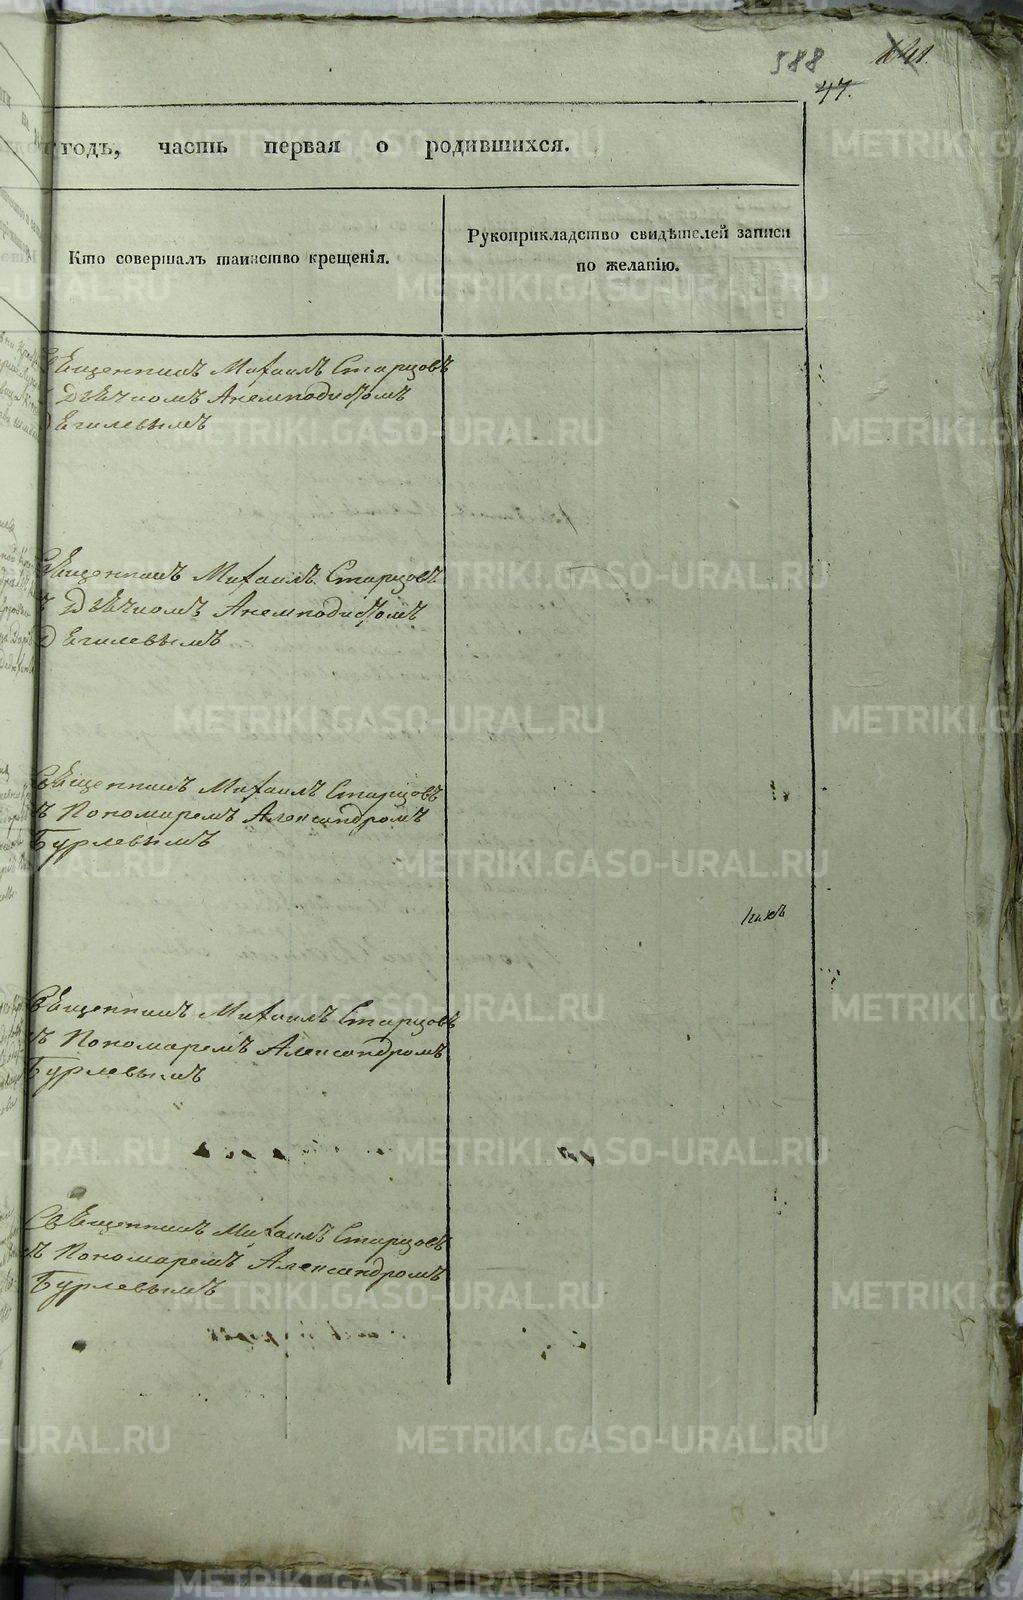 588
47.
годъ, часть первая о родившихся.
Кто совершалъ таинство крещенія.
Рукоприкладство свидѣтелей записи
по желанію.
Священникъ Михаилъ Старцовъ
съ Дьячкомъ Анемподистомъ
Дегилевымъ
Священникъ Михаилъ Старцовъ
съ Дьячкомъ Анемподистомъ
Дегилевымъ
Священникъ Михаилъ Старцовъ
съ Пономаремъ Александромъ
Бурлевымъ
Священникъ Михаилъ Старцовъ
съ Пономаремъ Александромъ
Бурлевымъ
Священникъ Михаилъ Старцовъ
съ Пономаремъ Александромъ
Бурлевымъ
METRIKI.GASO-URAL.RU